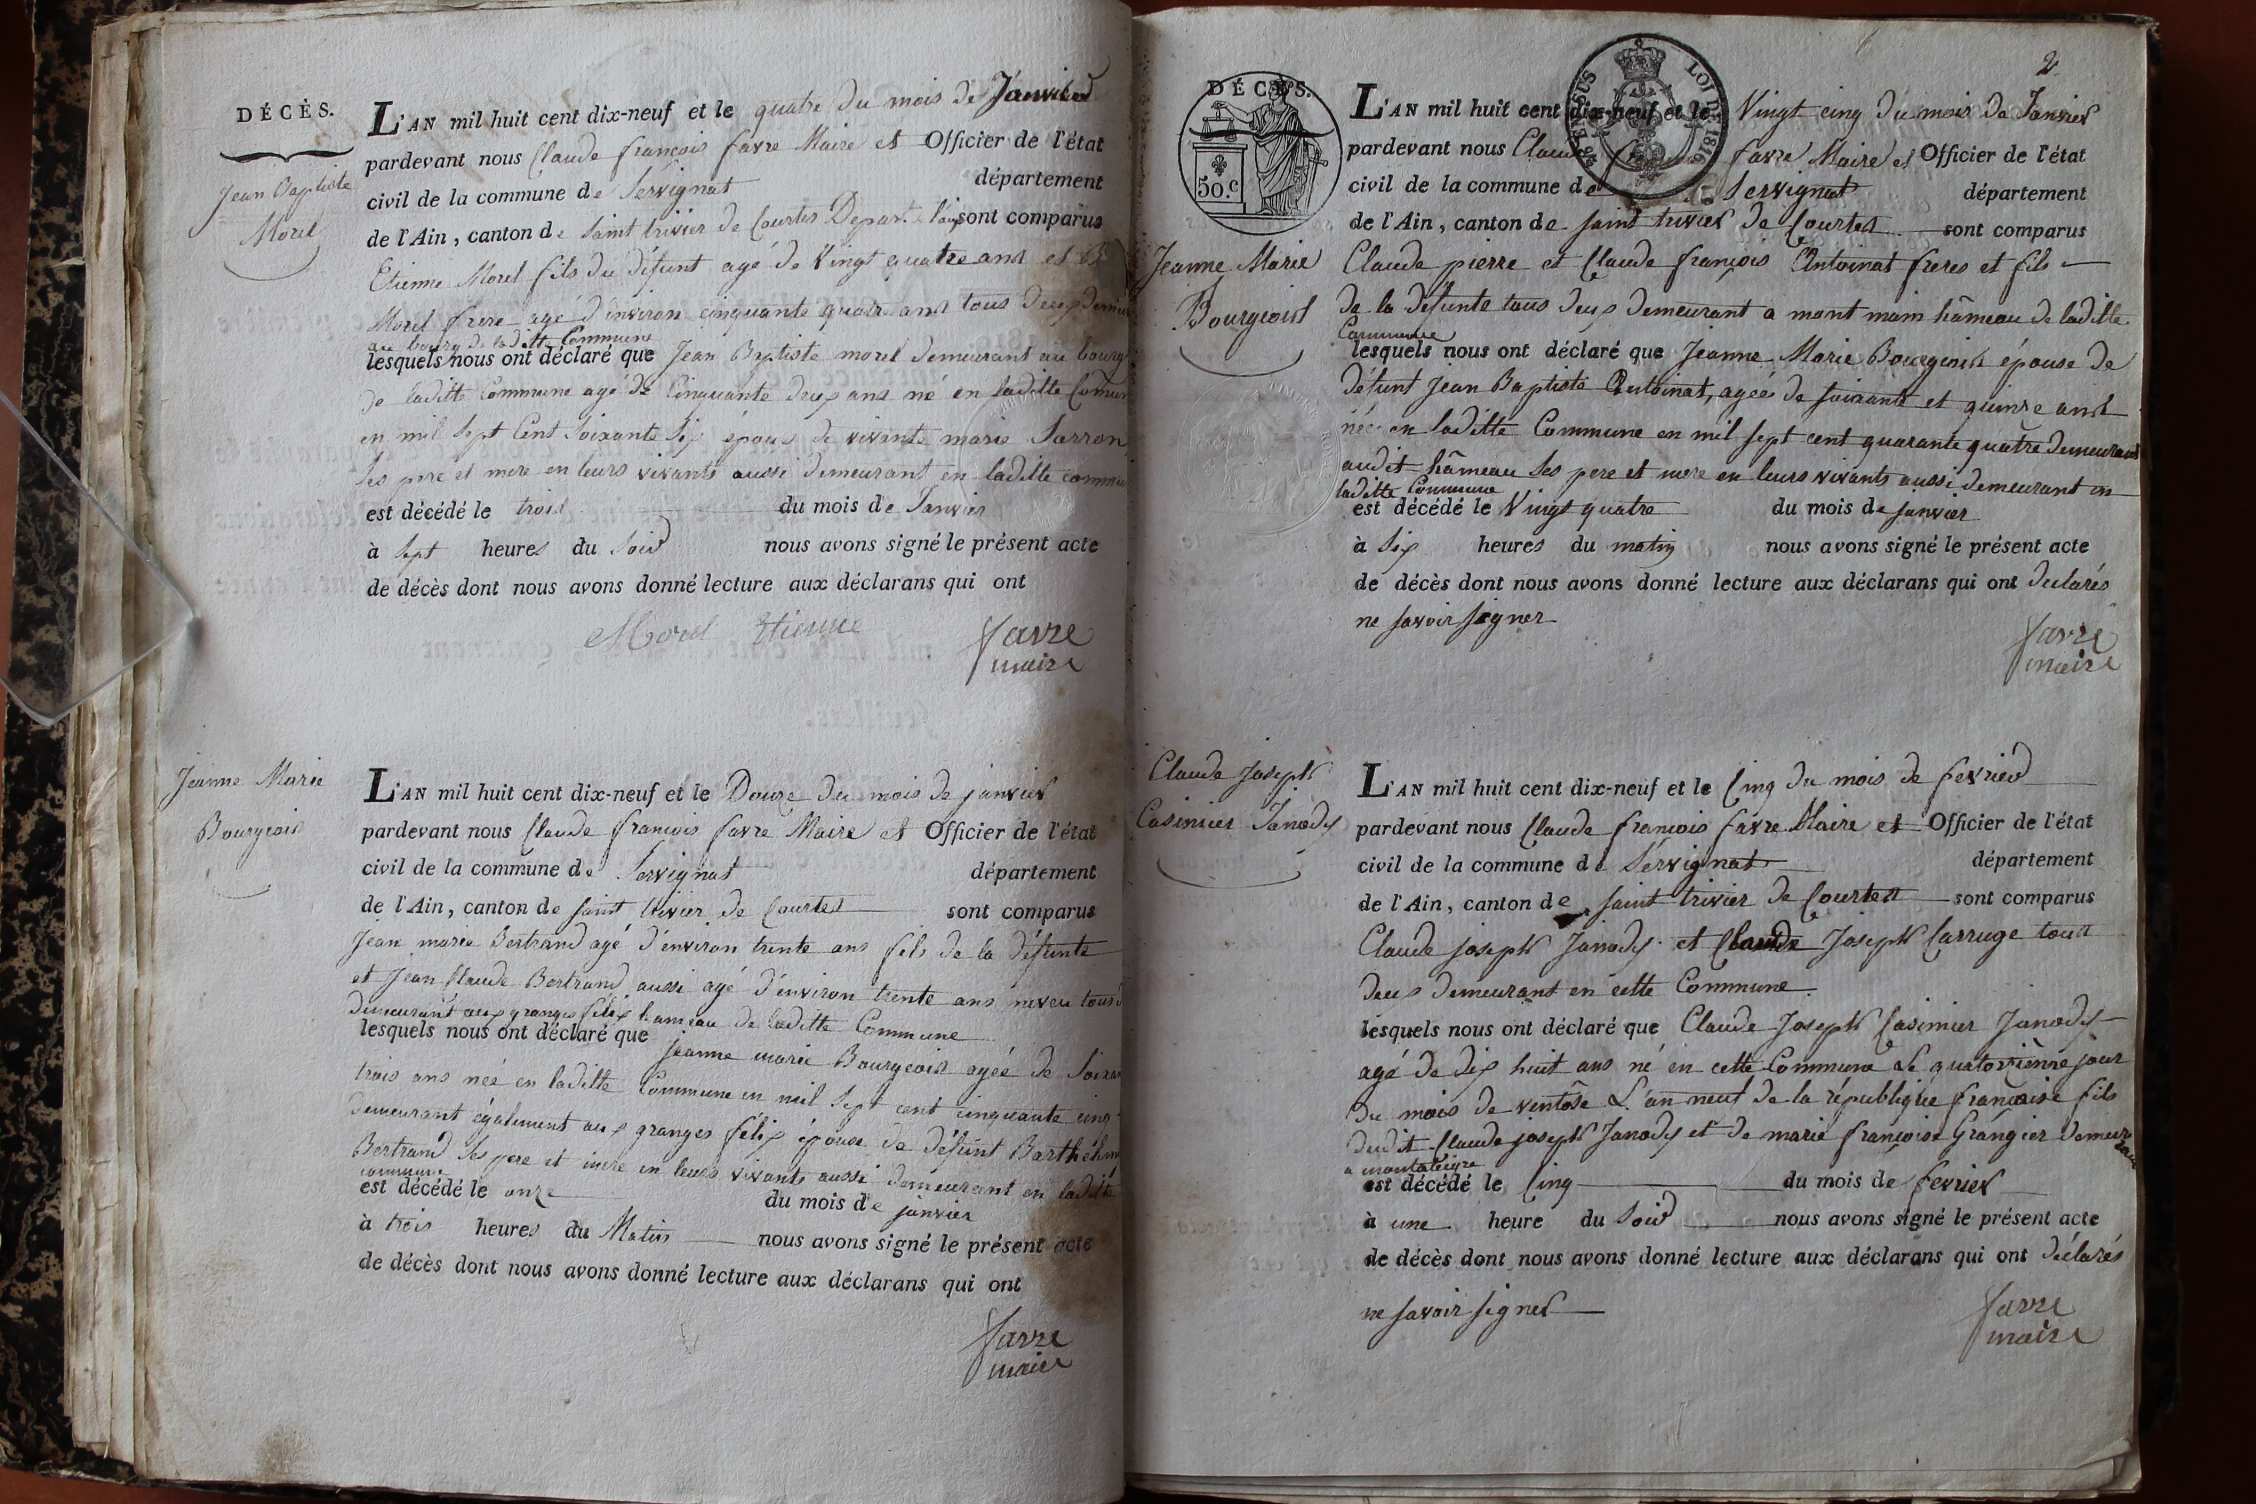 DÉCÈS.
Jean Baptiste
Morel
L'AN mil huit cent dix-neuf et le quatre du mois de Janvier
pardevant nous Claude françois favre Maire et Officier de l'état
civil de la commune de Servignat département
de l'Ain, canton de saint trivier de Courtes Depart. sont comparus
Etienne Morel fils du défunt agé de Vingt quatre ans et
Morel frere agé d'environ cinquante quatre ans tous deux
au bourg de laditte Commune
lesquels nous ont déclaré que Jean Baptiste morel demeurant au bourg
de laditte Commune agé de Cinquante deux ans né en laditte
en mil sept Cent soixante six époux de vivante marie Sarron
ses pere et mere en leurs vivants aussi demeurant en laditte
est décédé le trois du mois de Janvier
à sept heures du soir nous avons signé le présent acte
de décès dont nous avons donné lecture aux déclarans qui ont
Morel Etienne favre
maire
Jeanne Marie
Bourgeois
L'AN mil huit cent dix-neuf et le Douze du mois de janvier
pardevant nous Claude françois favre Maire et Officier de l'état
civil de la commune de Servignat département
de l'Ain, canton de saint trivier de Courtes sont comparus
Jean marie Bertrand agé d'environ trente ans fils de la défunte
et Jean Claude Bertrand aussi agé d'environ trente ans neveu
demeurant aux granges félix hameau de laditte Commune
lesquels nous ont déclaré que jeanne marie Bourgeois agée de
trois ans née en laditte Commune en mil sept cent cinquante cinq
demeurant également aux granges félix épouse de défunt
Bertrand ses pere et mere en leurs vivants aussi demeurant en laditte
commune
est décédé le onze du mois de janvier
à trois heures du Matin nous avons signé le présent acte
de décès dont nous avons donné lecture aux déclarans qui ont
favre
maire
2
DÉCÈS.
50.c
LOI DE 1816
Jeanne Marie
Bourgeois
L'AN mil huit cent dix-neuf et le Vingt cinq du mois de Janvier
pardevant nous Claude favre Maire et Officier de l'état
civil de la commune de Servignat département
de l'Ain, canton de saint trivier de Courtes sont comparus
Claude pierre et Claude françois Antoinat freres et fils
de la défunte tous deux demeurant a mont main hâmeau de laditte
Commune
lesquels nous ont déclaré que Jeanne Marie Bourgeois épouse de
défunt Jean Baptiste Antoinat, agée de soixante et quinze ans
née en laditte Commune en mil sept cent quarante quatre demeurant
audit hâmeau ses pere et mere en leurs vivants aussi demeurant en
laditte Commune
est décédé le Vingt quatre du mois de janvier
à six heures du matin nous avons signé le présent acte
de décès dont nous avons donné lecture aux déclarans qui ont déclarés
ne savoir signer
favre
maire
Claude Joseph
Casimier Janody
L'AN mil huit cent dix-neuf et le Cinq du mois de fevrier
pardevant nous Claude françois favre Maire et Officier de l'état
civil de la commune de Servignat département
de l'Ain, canton de saint trivier de Courtes sont comparus
Claude joseph Janody et Claude Joseph Carruge tous
deux demeurant en cette Commune
lesquels nous ont déclaré que Claude Joseph Casimier Janody
agé de dix huit ans né en cette Commune Le quatorzième jour
du mois de ventôse L'an neuf de la république française fils
dudit Claude joseph Janody et de marie françoise Grangier demeurant
a montaleigre
est décédé le Cinq du mois de fevrier
à une heure du soir nous avons signé le présent acte
de décès dont nous avons donné lecture aux déclarans qui ont déclarés
ne savoir signer
favre
maire